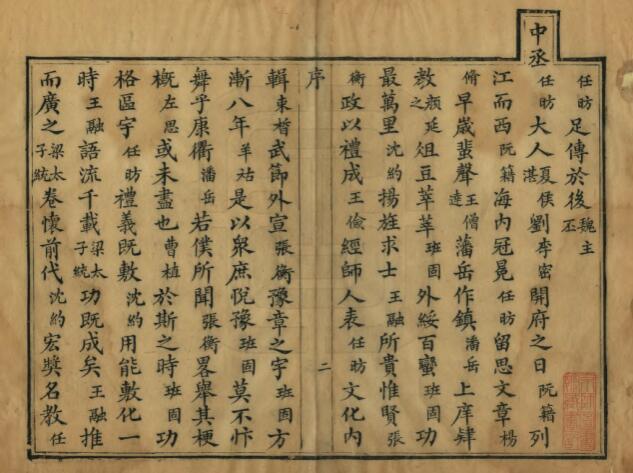 任昉足傳於後魏主丕
中丞任昉大人夏侯湛劉李密開府之日阮籍列
江而西阮籍海内冠冕任昉留思文章楊
脩早歲蜚聲王僧達藩岳作鎮潘岳上庠肄
教顏延之俎豆莘莘班固外綏百蠻班固功
最萬里沈約揚旌求士王融所貴惟賢張
衡政以禮成王儉經師人表任昉文化内
序
二
輯束皙武節外宣張衡豫章之宇班固方
漸八年羊祜是以衆庶悅豫班固莫不忭
舞乎康衢潘岳若僕所聞張衡畧舉其梗
概左思或未盡也曹植於斯之時班固功
格區宇任昉禮義既敷沈約用能敷化一
時王融語流千載梁太子統功既成矣王融推
而廣之梁太子統卷懷前代沈約宏奬名教任